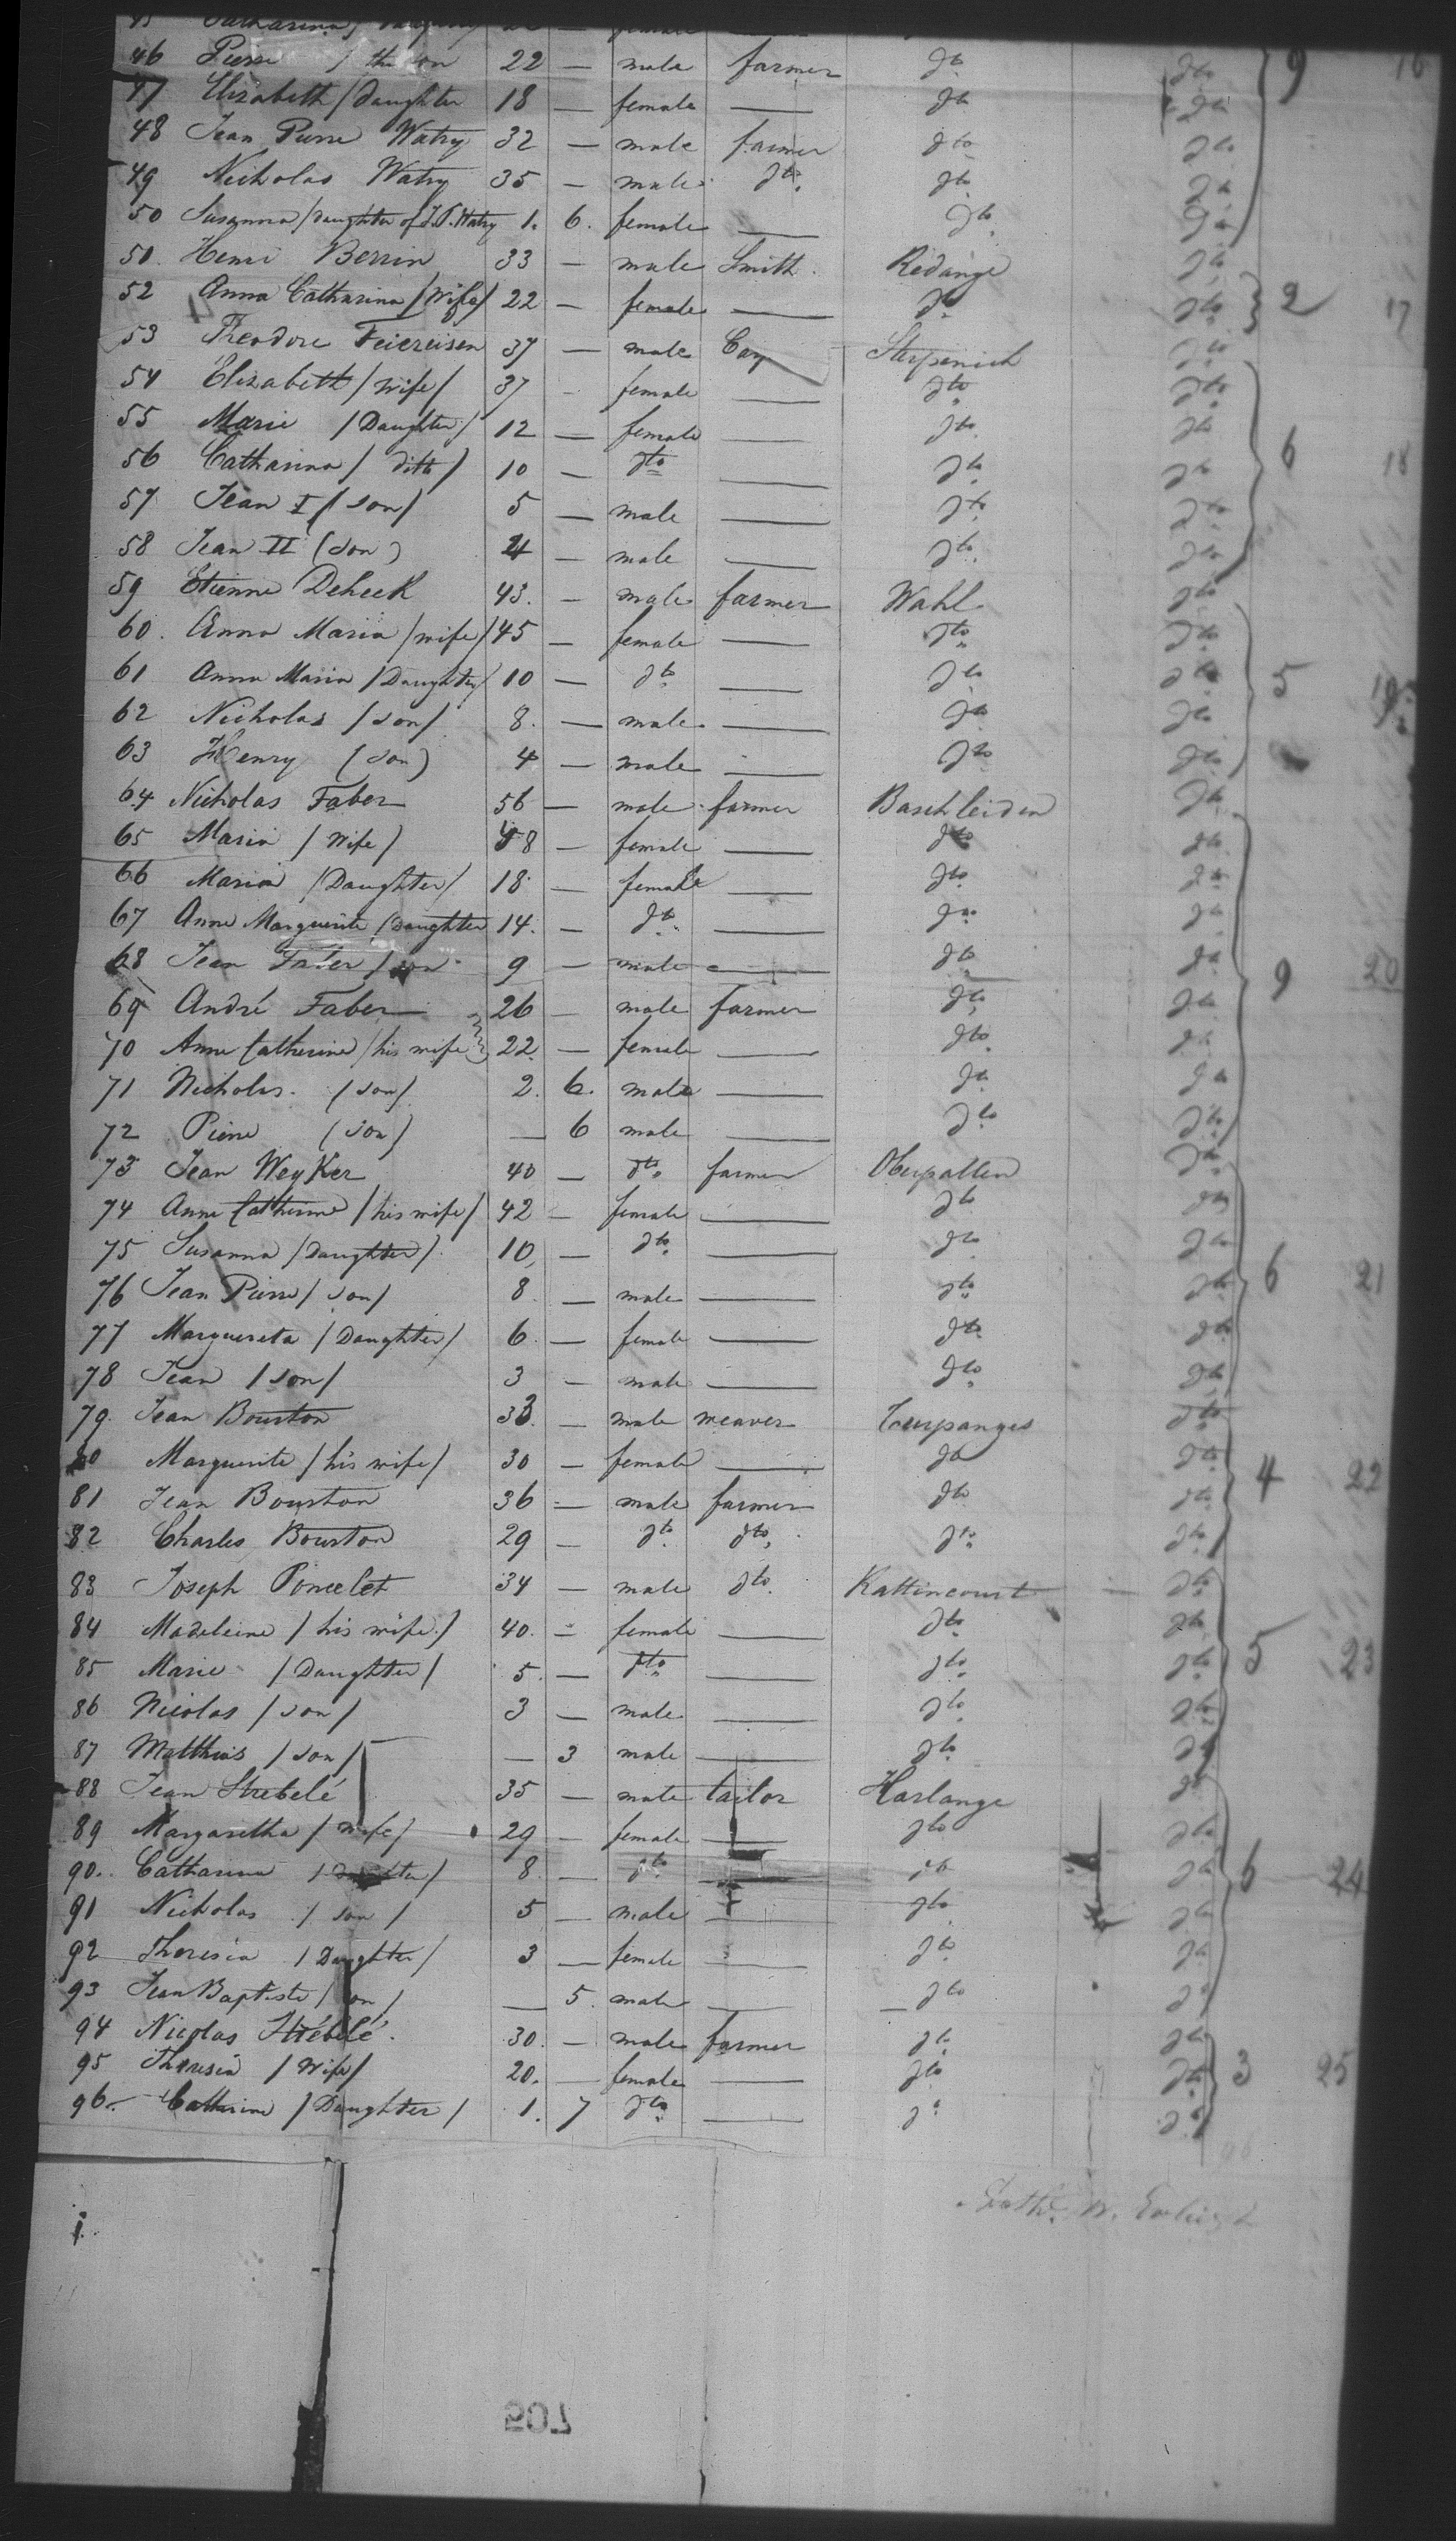 45 Catharina / female
46 Pierre / the son 22 — male farmer dto dto 9 16
47 Elizabeth / Daughter 18 — female — dto dto
48 Jean Pierre Watry 32 — male farmer dto dto
49 Nicholas Watry 35 — male dto. dto dto
50 Susanna / Daughter of J.P. Watry 1. 6. female — dto dto
50. Henri Berrin 33 — male Smith. Redange dto
52 Anna Catharina / Wife / 22 — female — dto dto 2 17
53 Theodore Feiereisen 37 — male Sterpenich dto
54 Elizabeth / wife / 37 - female — dto dto
55 Marie / Daughter / 12 — female — dto dto
56 Catharina / ditto / 10 — dto — dto dto 6 18
57 Jean I / son / 5 — male — dto dto
58 Jean II (son) 4 — male — dto dto
59 Etienne Deheck 43. — male farmer Wahl dto
60. Anna Maria / wife / 45 — female — dto dto
61 Anna Maria / Daughter / 10 — dto — dto dto 5 19
62 Nicholas / son / 8. — male — dto dto
63 Henry (son) 4 — male — dto dto
64 Nicholas Faber 56 — male farmer Baschleiden dto
65 Maria / Wife / 48 — female — dto dto
66 Maria / Daughter / 18 — female — dto dto
67 Anne Marguerite / Daughter 14. — dto — dto dto
68 Jean Faber / son 9 — male — dto dto 9 20
69 André Faber 26 — male farmer dto dto
70 Anne Catherine / his wife 22. — female — dto dto
71 Nicholas. / son / 2. 6. male — dto dto
72 Pierre / son / — 6 male — dto dto
73 Jean Weyker 40 — dto farmer Oberpallen dto
74 Anne Catherine / his wife / 42 — female — dto dto
75 Susanna / Daughter / 10, — dto — dto dto
76 Jean Pierre / son / 8. — male — dto dto 6 21
77 Margareta / Daughter / 6. — female — dto dto
78 Jean / son / 3 — male — dto dto
79. Jean Bourton 33. — male weaver Turpanges dto
80 Marguerite / his wife / 30 — female — dto dto 4 22
81 Jean Bourton 36 — male farmer dto dto
82 Charles Bourton 29 — dto dto. dto dto
83 Joseph Poncelet 34 — male dto. Rattincourt dto
84 Madeleine / his wife / 40. — female — dto dto
85 Marie / Daughter / 5. — dto — dto dto 5 23
86 Nicolas / son / 3 — male — dto dto
87 Matthias / son / — 3 male — dto dto
88 Jean Strebelé 35 — male tailor Harlange dto
89 Margaretha / wife / 29 — female — dto dto
90. Catharina / Daughter / 8. — dto — dto dto 6 24
91 Nicholas / son / 5 — male — dto dto
92 Theresia / Daughter / 3 — female — dto dto
93 Jean Baptiste / son / — 5. male — dto dto
94 Nicolas Strébelé. 30. — male farmer dto dto
95 Theresia / Wife / 20. — female — dto dto 3 25
96. Catherine / Daughter / 1. 7 dto — dto dto
96
507